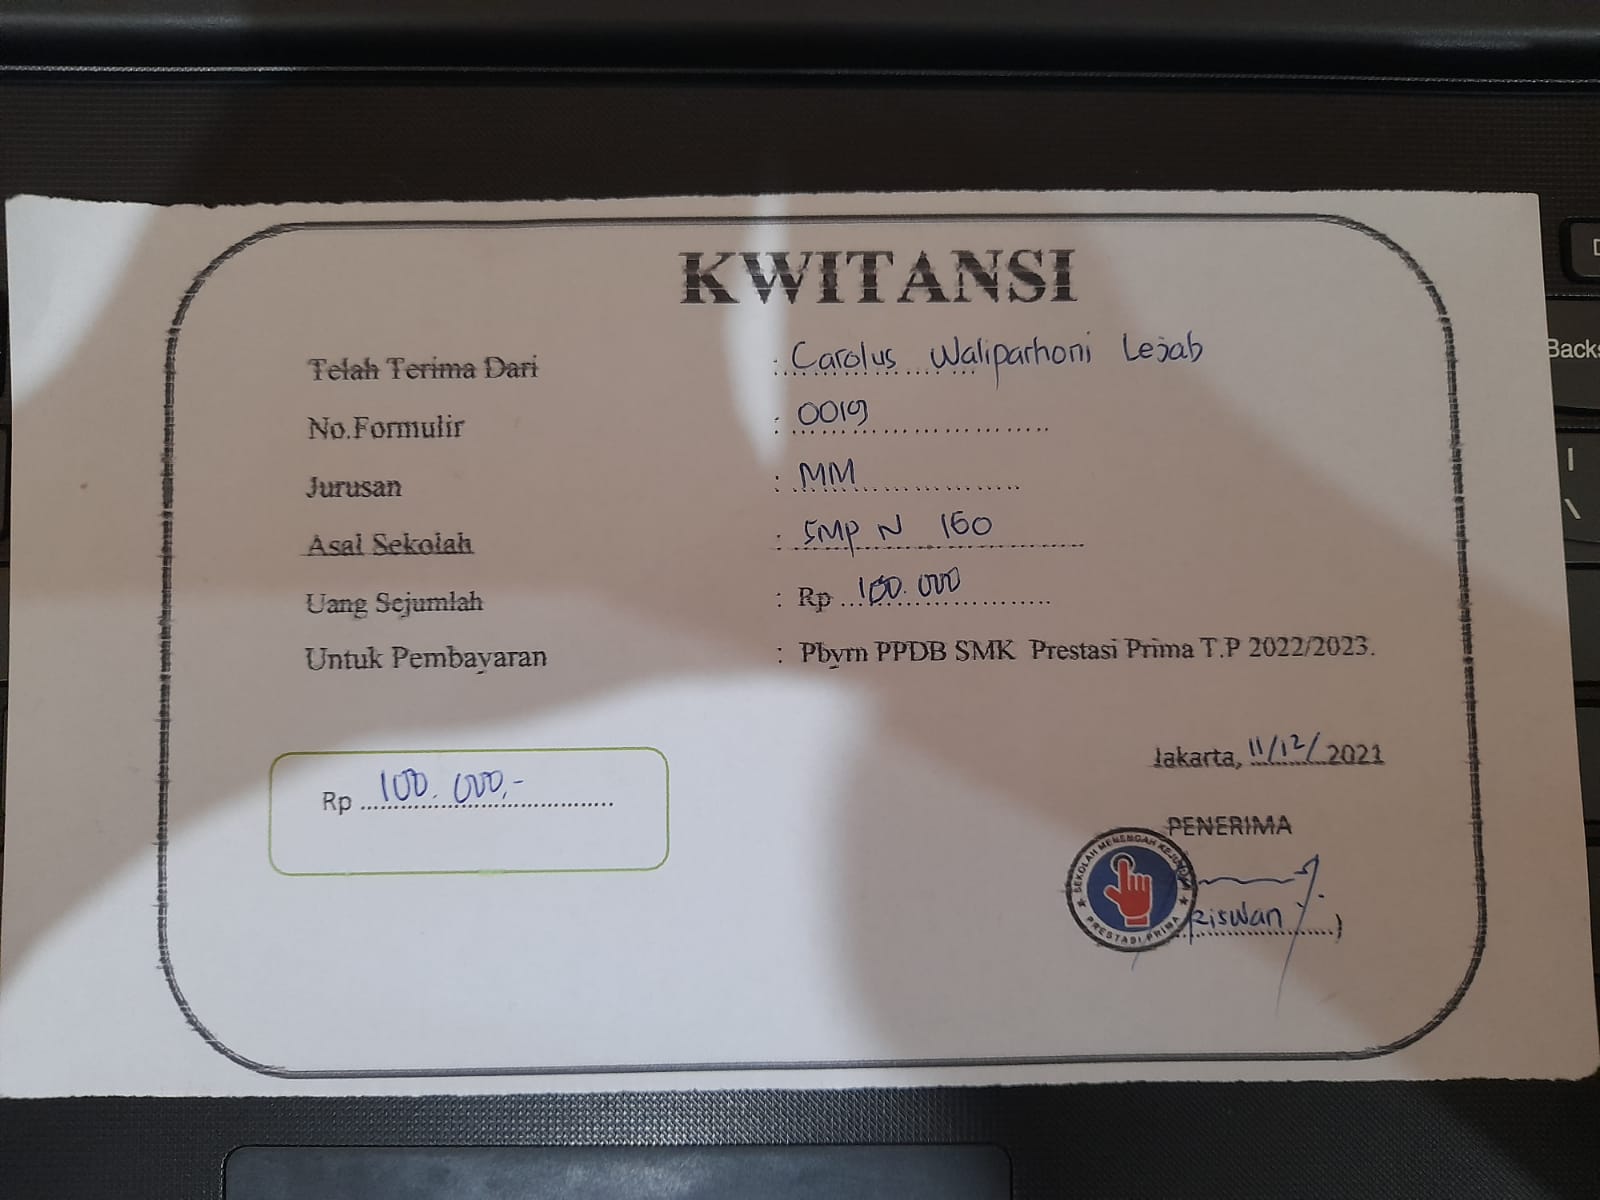 KWITANSI
Telah Terima Dari : Carolus Waliparhoni Lejab
No.Formulir : 0019
Jurusan : MM
Asal Sekolah : SMP N 160
Uang Sejumlah : Rp 100.000
Untuk Pembayaran : Pbyrn PPDB SMK Prestasi Prima T.P 2022/2023.
Jakarta, 11/12/2021
Rp 100.000,-
PENERIMA
SEKOLAH MENENGAH KEJURUAN
PRESTASI PRIMA
Riswan )
Backs